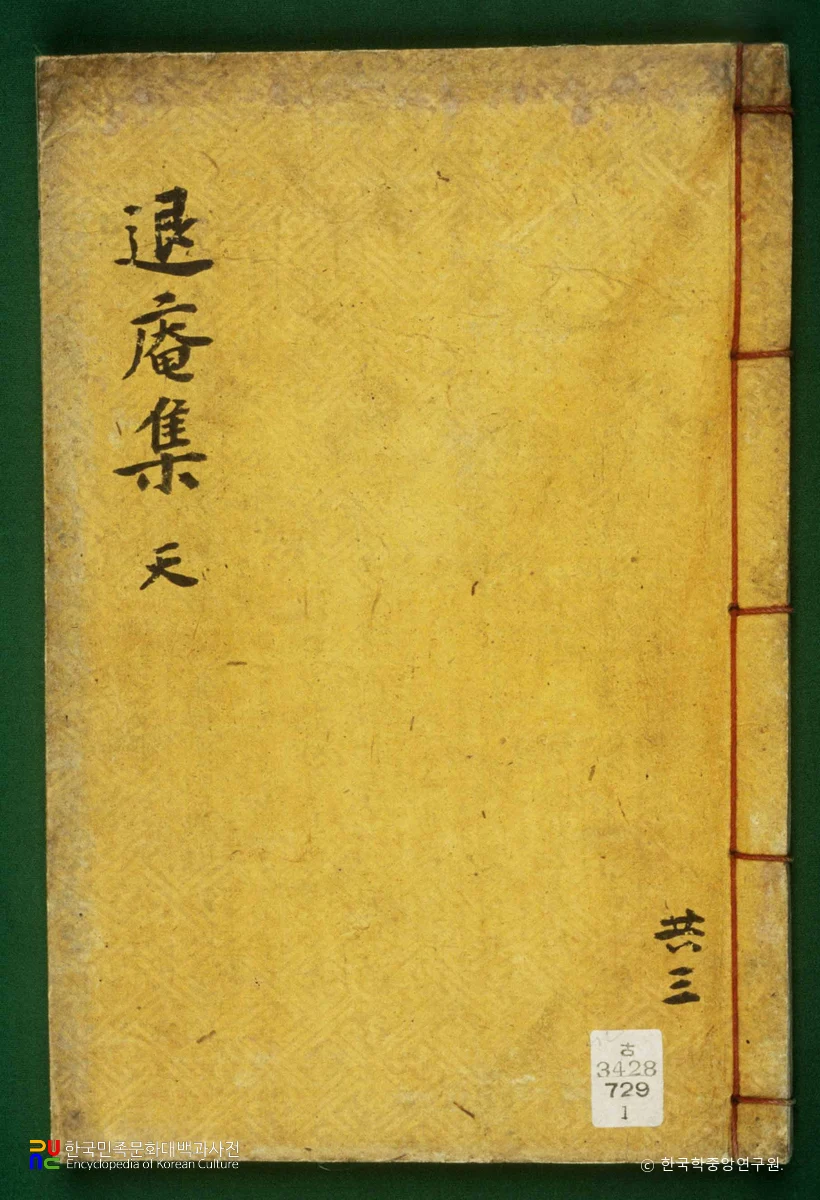 退庵集 天
共三
古
3428
729
1
한국민족문화대백과사전
Encyclopedia of Korean Culture
© 한국학중앙연구원.